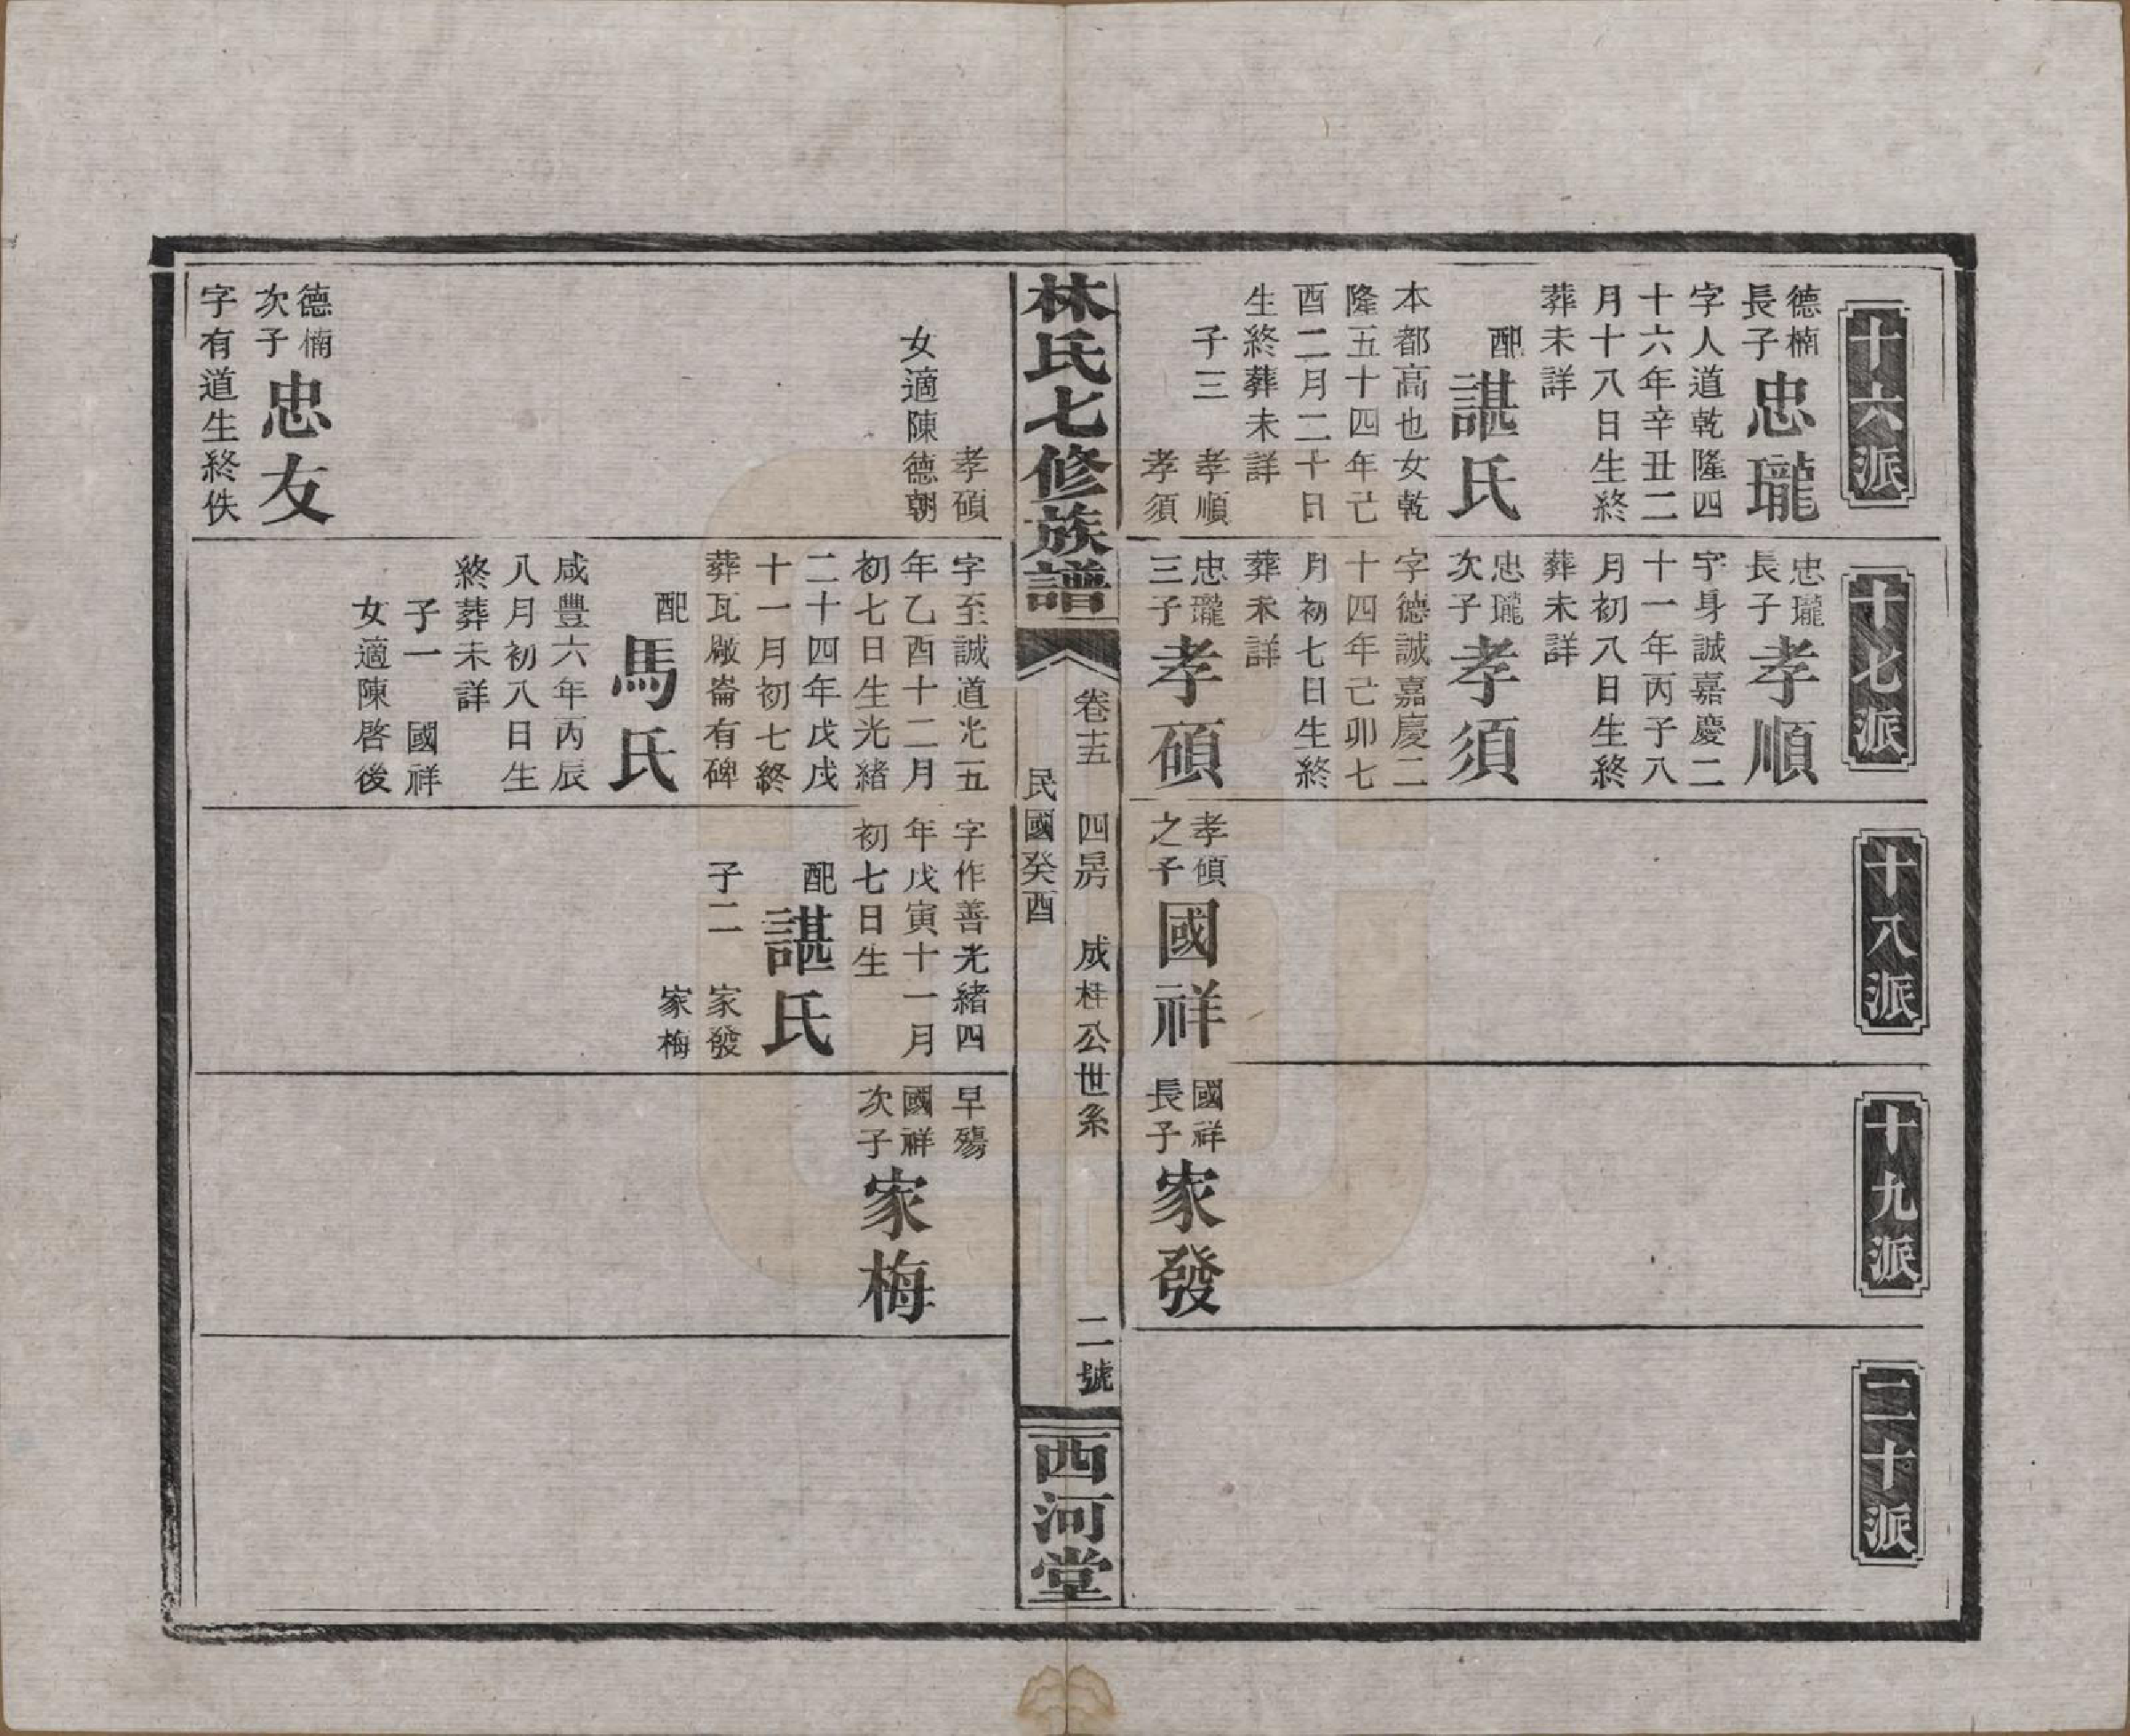 十六派
德楠
長子
忠瓏
字人道乾隆四
十六年辛丑二
月十八日生終
葬未詳
配
諶氏
本都高也女乾
隆五十四年己
酉二月二十日
生終葬未詳
子三
孝順
孝須
十七派
忠瓏
長子
孝順
字身誠嘉慶二
十一年丙子八
月初八日生終
葬未詳
忠瓏
次子
孝須
字德誠嘉慶二
十四年己卯七
月初七日生終
葬未詳
忠瓏
三子
孝碩
十八派
孝傾
之子
國祥
十九派
國祥
長子
家發
二十派
林氏七修族譜
卷十五
四房
成桂公世系
二號
民國癸酉
西河堂
孝碩
女適陳德朝
德楠
次子
忠友
字有道生終佚
字至誠道光五
年乙酉十二月
初七日生光緒
二十四年戊戌
十一月初七終
葬瓦廠崙有碑
配
馬氏
咸豐六年丙辰
八月初八日生
終葬未詳
子一
國祥
女適陳啓後
字作善光緒四
年戊寅十一月
初七日生
配
諶氏
子二
家發
家梅
早殤
國祥
次子
家梅